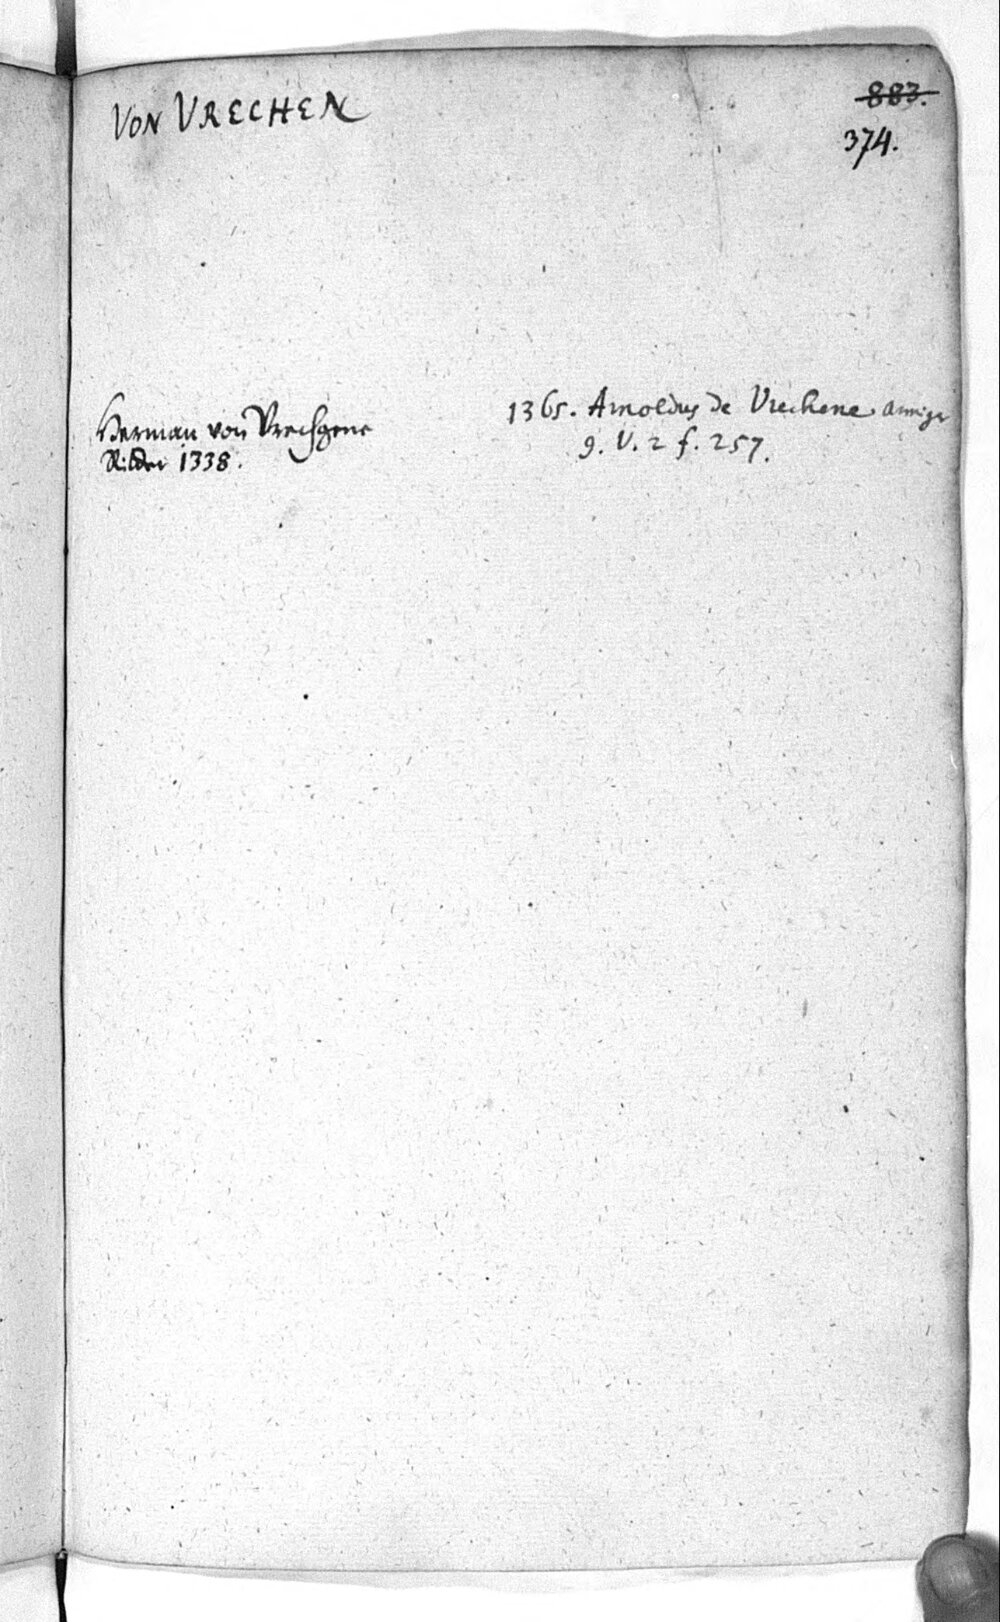 VON VRECHEN
883.
374.
Herman von Vrechgene
Ridder 1338.
1365. Arnoldus de Vrechene armiger
g. V. 2 f. 257.